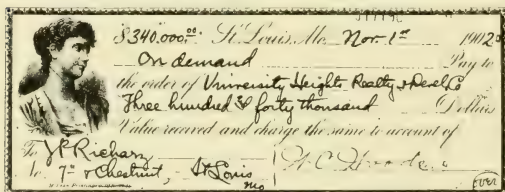 $340.000.00 St. Louis, Mo. Nov. 1st 1902
On demand Pay to
the order of University Heights Realty & Devel Co
Three hundred & forty thousand Dollars
Value received and charge the same to account of
To
7th & Chestnut, St Louis
Mo
over